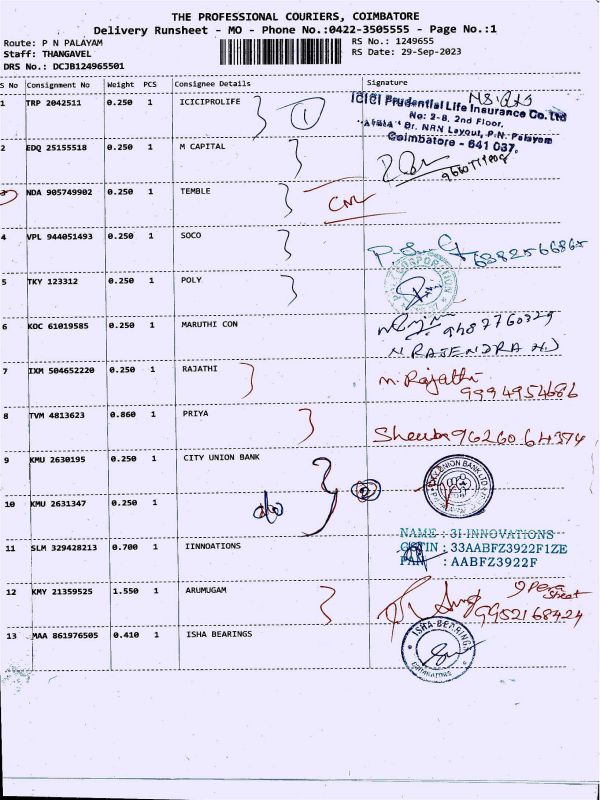 THE PROFESSIONAL COURIERS, COIMBATORE
Delivery Runsheet - MO - Phone No.:0422-3505555 - Page No.:1
Route: P N PALAYAM
RS No.: 1249655
Staff: THANGAVEL
RS Date: 29-Sep-2023
DRS No.: DCJB124965501
S No Consignment No Weight PCS Consignee Details Signature
1 TRP 2042511 0.250 1 ICICIPROLIFE 1
ICICI Prudential Life Insurance Co. Ltd
No: 2-8, 2nd Floor,
Dr. NRN Layout, P.N. Palayam
Coimbatore - 641 037.
2 EDQ 25155518 0.250 1 M CAPITAL
3 NDA 905749902 0.250 1 TEMBLE
4 VPL 944051493 0.250 1 SOCO
6382566865
5 TKY 123312 0.250 1 POLY
CORPORATION
6 KOC 61019585 0.250 1 MARUTHI CON
9487760329
N RAJENDRAN
7 IXM 504652220 0.250 1 RAJATHI
M. Rajathi
9994954686
8 TVM 4813623 0.860 1 PRIYA
9626064374
9 KMU 2630195 0.250 1 CITY UNION BANK
CITY UNION BANK LTD
10 KMU 2631347 0.250 1
11 SLM 329428213 0.700 1 IINNOATIONS
NAME : 3I-INNOVATIONS
GSTIN : 33AABFZ3922F1ZE
PAN : AABFZ3922F
12 KMY 21359525 1.550 1 ARUMUGAM
9952168424
13 MAA 861976505 0.410 1 ISHA BEARINGS
ISHA-BEARINGS